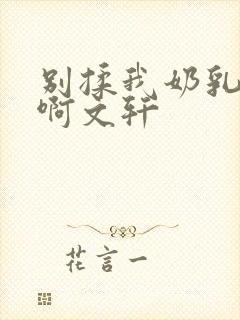 别揉我奶乳
啊文轩
花言一